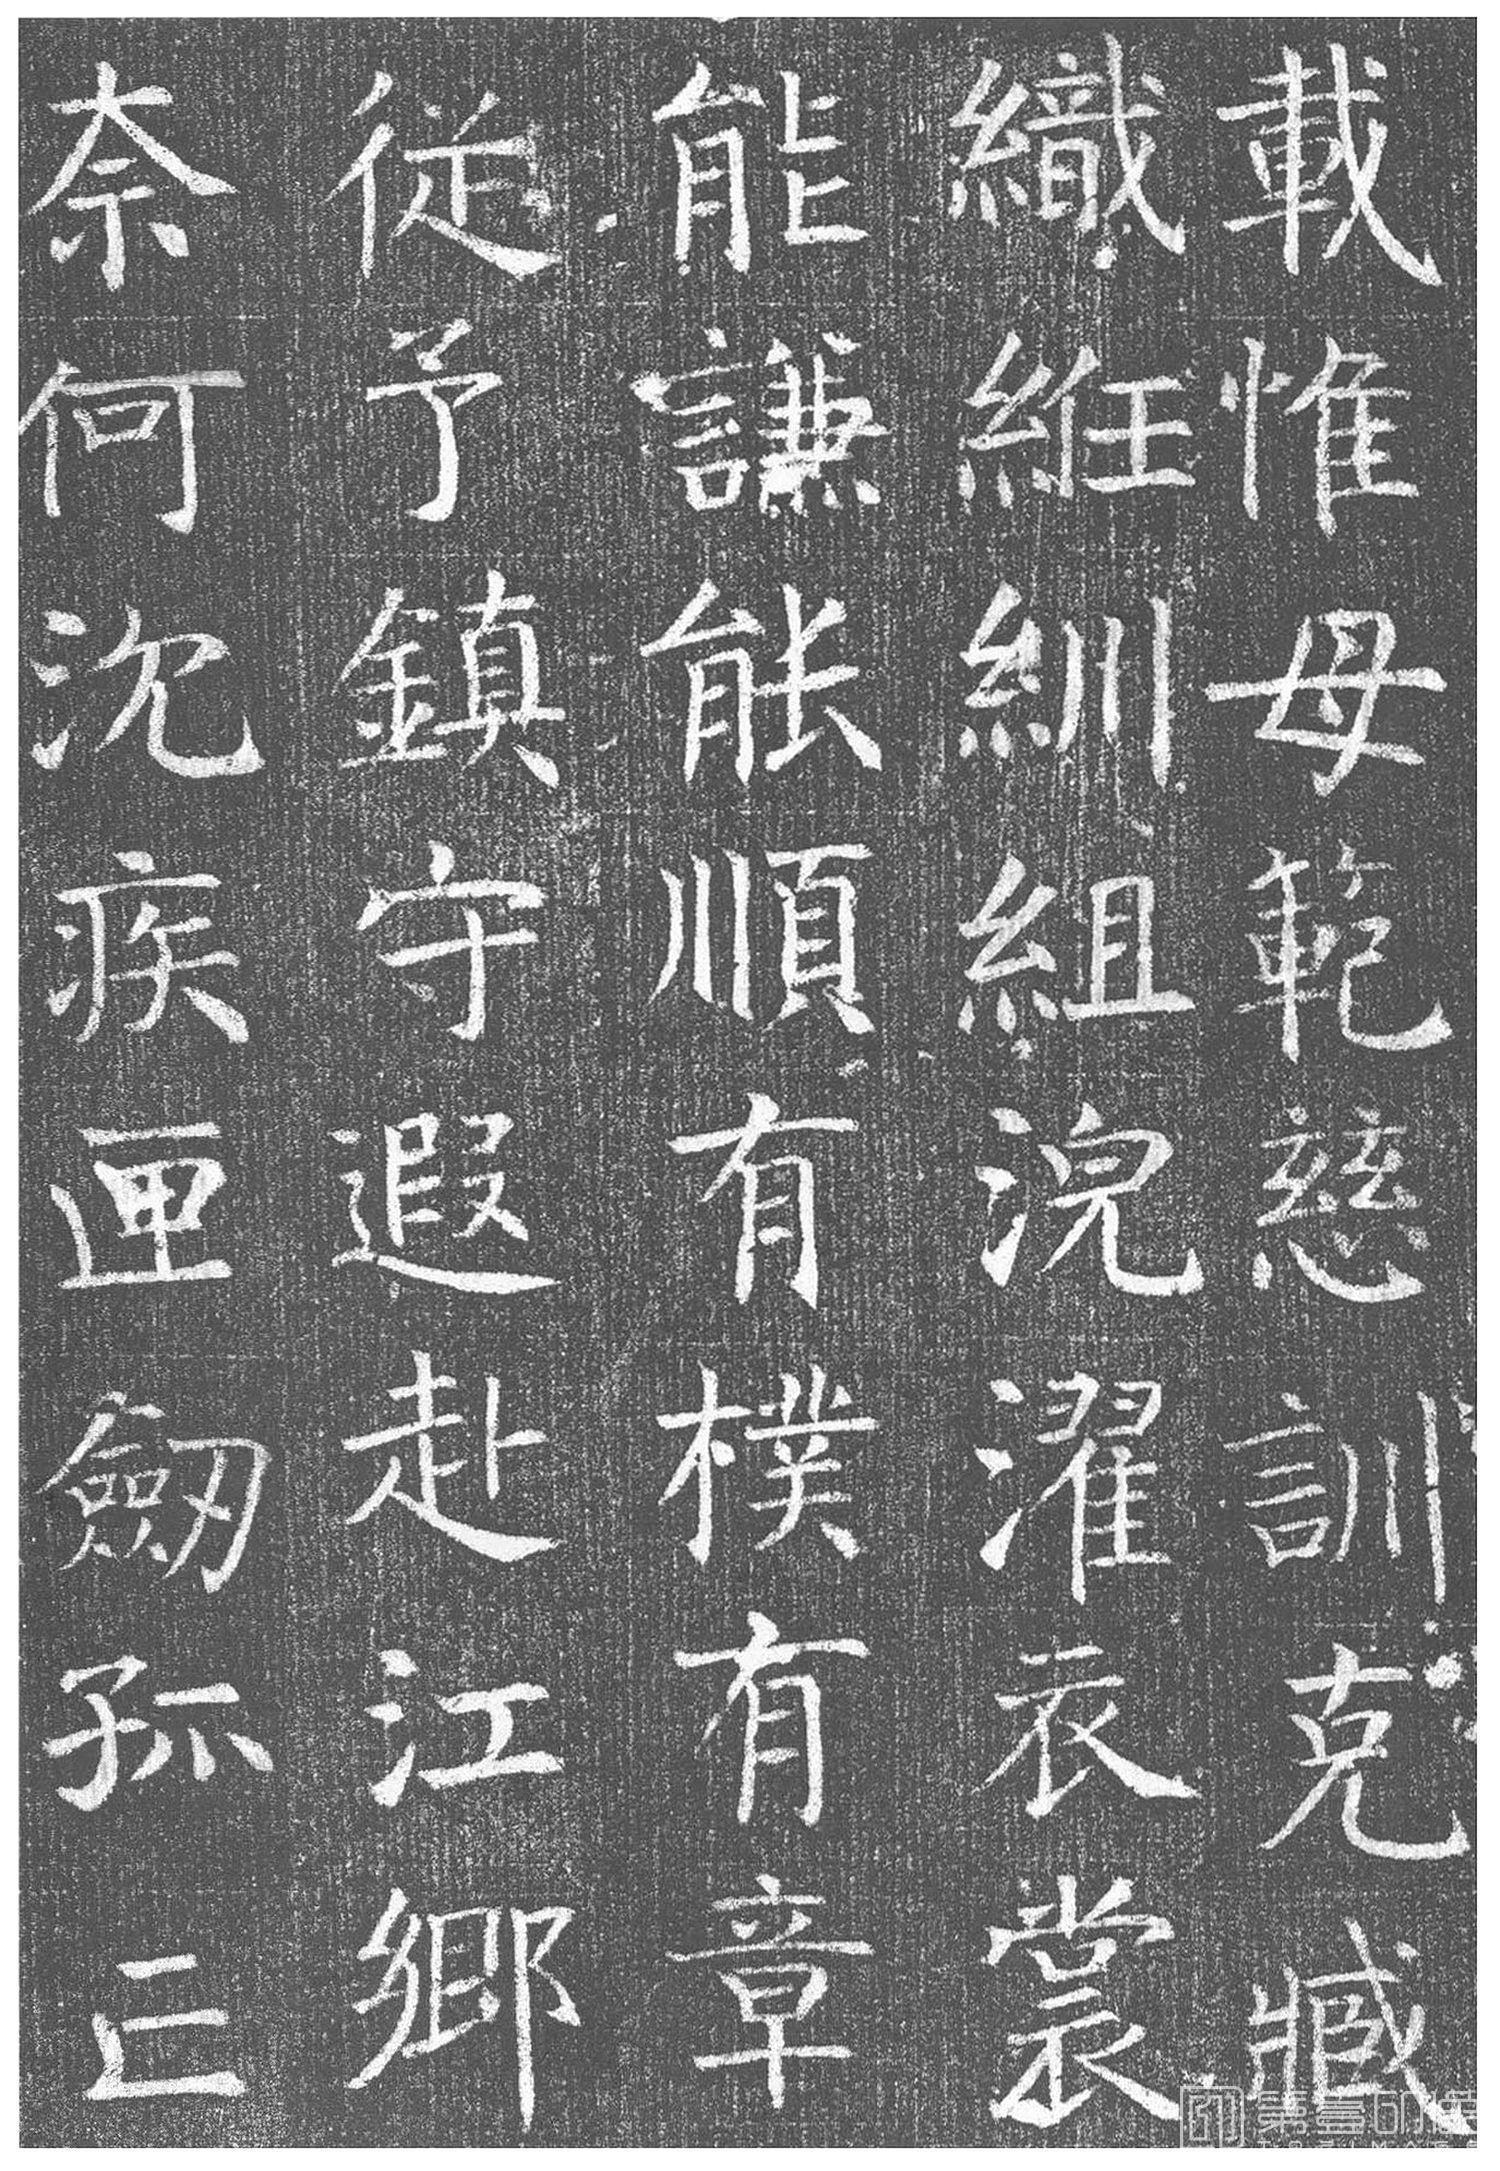 載惟母範慈訓克臧
織絍紃組浣濯衣裳
能謙能順有樸有章
從予鎮守遐赴江鄉
奈何沈疾匣劒孤亡
第壹印